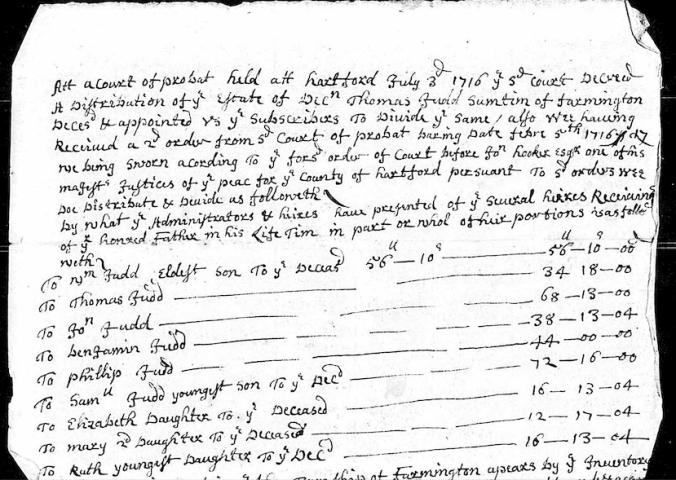 Att a Court of probat held att hartford July 3d 1716 ye sd Court Decreed
A Distribution of ye Estate of Decn Thomas Judd sumtim of farmington
Decesd & appointed vs ye subscribers To Divide ye same / also wee having
Receiued a 2d order from sd Court of probat baring Date febre 5th 1716/17
we being sworn acording To ye forsd order of Court before Jon hooker Esqr one of his
majests Justices of ye peac for ye County of hartford persuant To sd orders wee
Doe Distribute & Devide as followeth
by what ye Administrators & heires have presented of ye seural heires Receiuing
of yr honred Father in his Life Tim in part or whol of their portions is as follo
weth
To Wm Judd Eldest son To ye Deceasd 56ll — 10s 56 — 10 — 00
To Thomas Judd 34 18 — 00
To Jon Judd 68 — 13 — 00
To benjamin Judd 38 — 13 — 04
To phillip Judd 44 — 00 — 00
To Samll Judd youngest son To ye Decd 72 — 16 — 00
To Elizabeth Daughter To ye Deceased 16 — 13 — 04
To mary 2d Daughter To ye Deceased 12 — 17 — 04
To Ruth youngest Daughter To ye Decd 16 — 13 — 04
of Farmington apears by ye Inventory